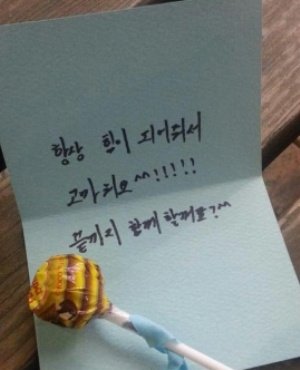 항상 힘이 되어줘서
고마워요^^!!!!!
끝까지 함께 할꺼죠?^^